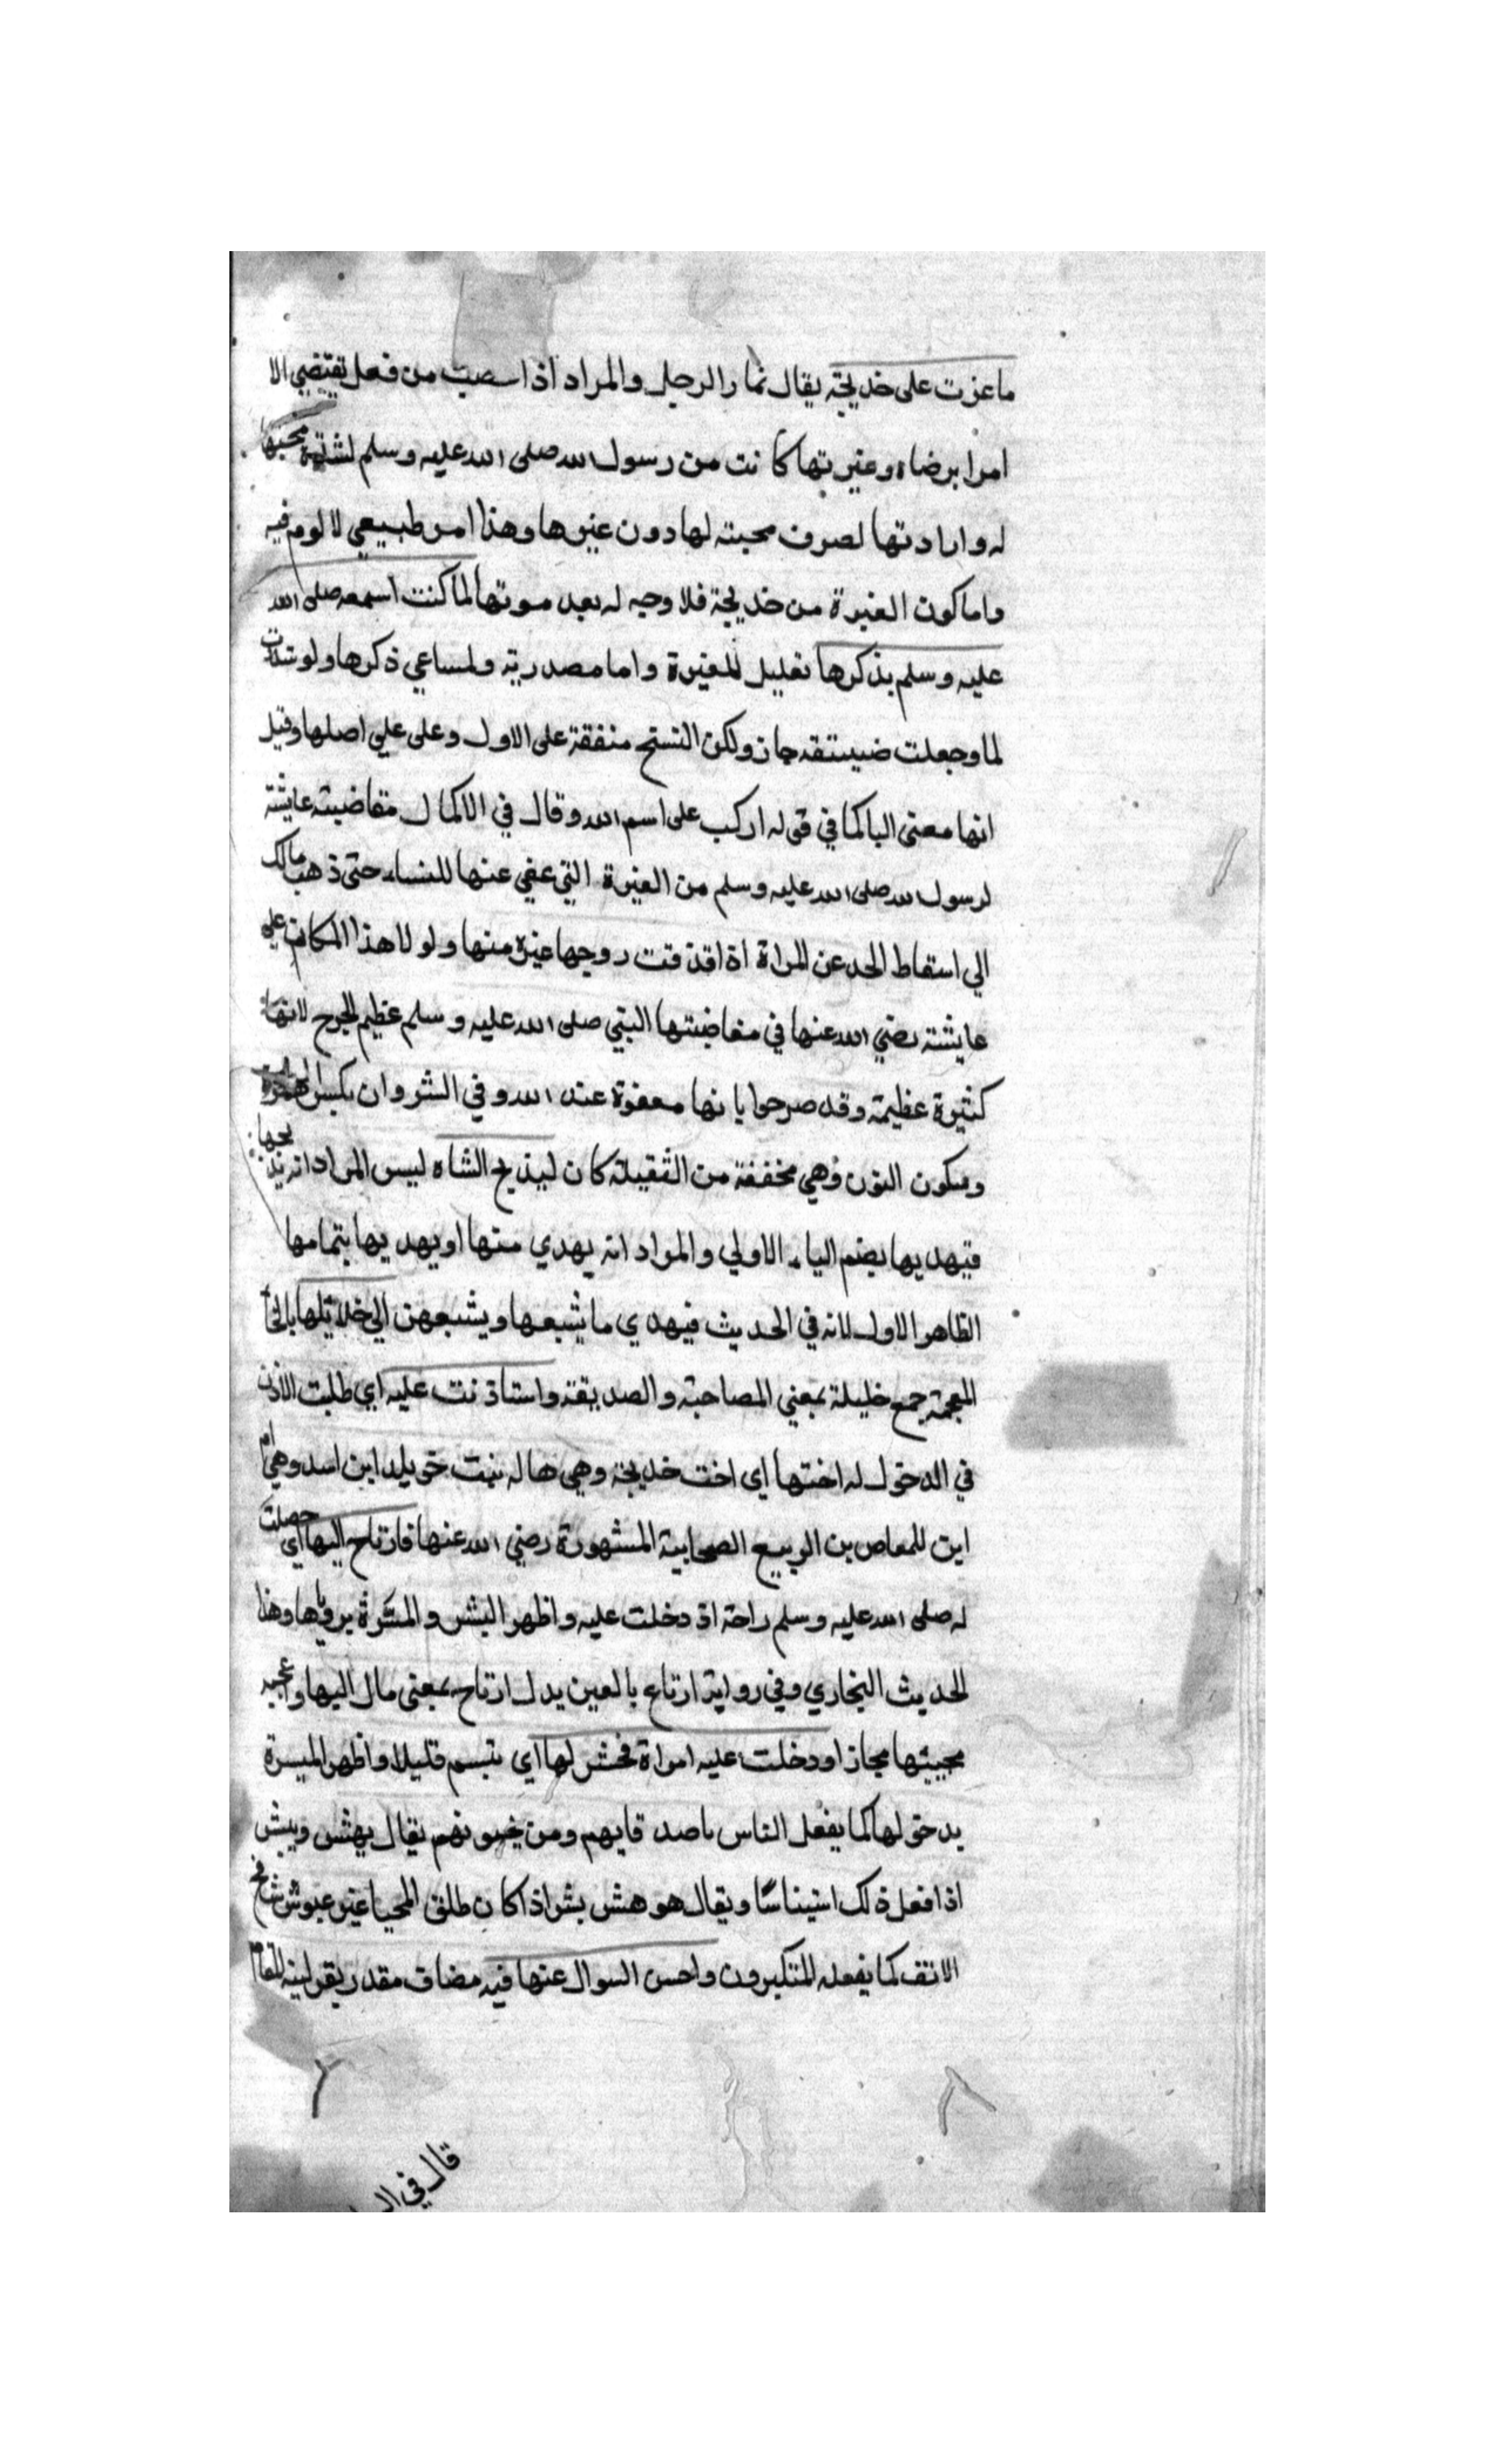 ما غرت على خديجة يقال غار الرجل والمراد اذا من فعل يقتضي الا
امرا برضاه وغيرتها كانت من رسول الله صلى الله عليه وسلم لشدة محبتها
له وارادتها لصرف محبته لها دون غيرها وهذا امر طبيعي لا لوم فيه
واما كون الغيرة من خديجة فلا وجه له بعد موتها لما كنت اسمعه صلى الله
عليه وسلم يذكرها تعليل للغيرة واما مصدرية ولسماعي ذكرها ولو شددت
لما وجعلت جاز ولكن النسخ متفقة على الاول وعلى علي اصلها وقيل
انها معنى البا كما في قوله اركب على اسم الله وقال في الاكمال مغاضبة عايشة
لرسول الله صلى الله عليه وسلم من الغيرة التي عفي عنها للنساء حتى ذهب مالك
الي اسقاط الحد عن المراة اذا قذفت زوجها غيرة منها ولو لا هذا المكان علي
عايشة رضي الله عنها في مغاضبتها النبي صلى الله عليه وسلم عظيم الجرح لانها
كثيرة عظيمة وقد صرحوا بانها معفوة عند الله وفي الشر وان بكسر الهمزة
وسكون النون وهي مخففة من الثقيلة كان ليذبح الشاه ليس المراد انه يذبحها
فيهديها بضم الياء الاولي والمراد انه يهدي منها او يهديها بتمامها
الظاهر الاول لانه في الحديث فيهدي ما يشبعها ويشبعهن الي خلايلها بالخا
المعجمة جمع خليلة بمعني المصاحبة والصديقة واستاذنت عليه اي طلبت الاذن
في الدخول له اختها اي اخت خديجة وهي هاله بنت خويلد ابن اسد وهي ام
ابي للعاص بن الربيع الصحابية المشهورة رضي الله عنها فارتاح اليها اي حصلت
له صلى الله عليه وسلم راحة اذ دخلت عليه واظهر البشر والمسرة برؤياها وهذا
الحديث البخاري وفي رواية ارتاع بالعين بدل ارتاح بمعنى مال اليها واعجبه
مجيئها مجازا ودخلت عليه امراة فهش لها اي تبسم قليلا واظهر الميسرة
بدخولها كما يفعل الناس باصدقايهم ومن يحبونهم يقال يهش ويبش
اذا فعل ذلك استيناسا ويقال هو هش بش اذا كان طلق المحيا غير عبوش شامخ
الانف كما يفعله المتكبرون واحسن السوال عنها فيه مضاف مقدر بقرلينه للمقام
قال في